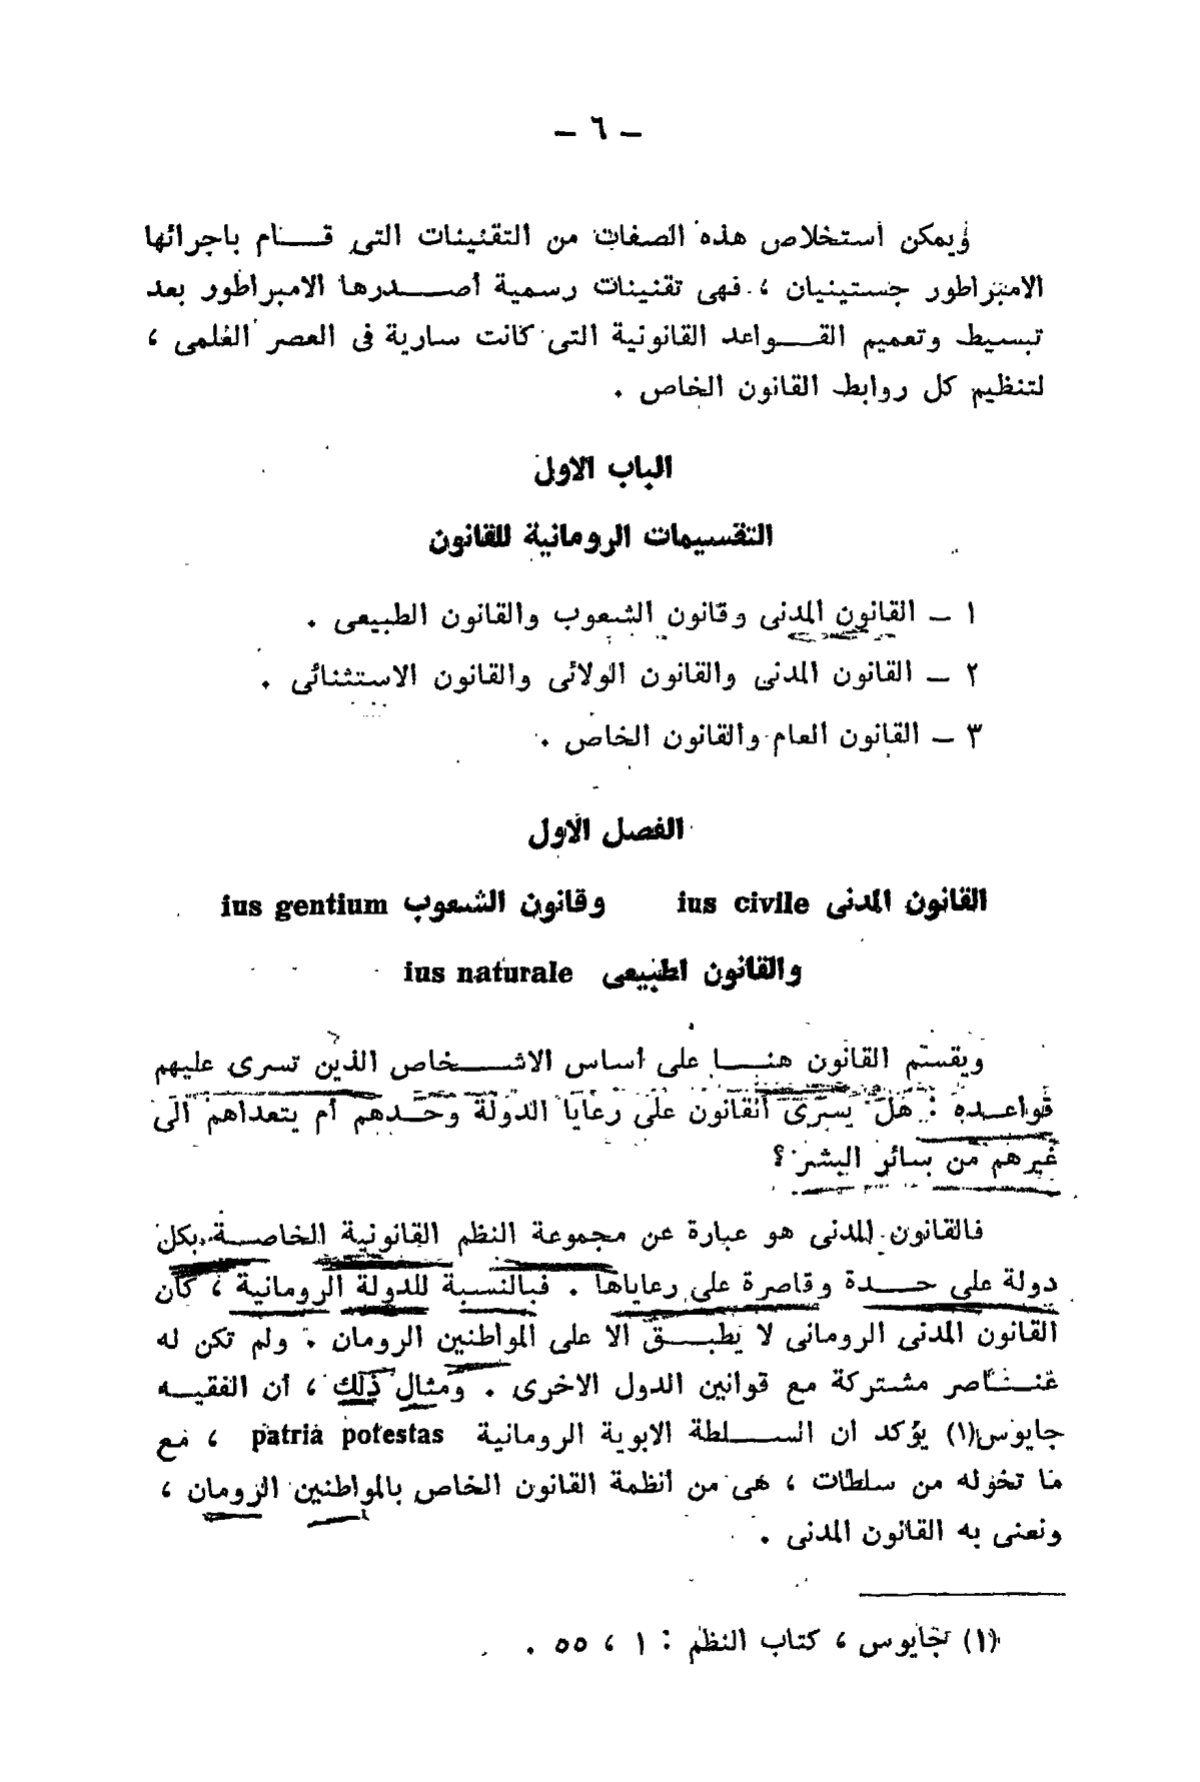 – ٦ –
ويمكن استخلاص هذه الصفات من التقنينات التى قام باجرائها
الامبراطور جستينيان ، فهى تقنينات رسمية أصدرها الامبراطور بعد
تبسيط وتعميم القواعد القانونية التى كانت سارية فى العصر العلمى ،
لتنظيم كل روابط القانون الخاص .
الباب الاول
التقسيمات الرومانية للقانون
١ – القانون المدنى وقانون الشعوب والقانون الطبيعى .
٢ – القانون المدنى والقانون الولائى والقانون الاستثنائى .
٣ – القانون العام والقانون الخاص .
الفصل الاول
القانون المدنى ius civile وقانون الشعوب ius gentium
والقانون اطبيعى ius naturale
ويقسم القانون هنا على أساس الاشخاص الذين تسرى عليهم
قواعده : هل يسرى القانون على رعايا الدولة وحدهم أم يتعداهم الى
غيرهم من سائر البشر ؟
فالقانون المدنى هو عبارة عن مجموعة النظم القانونية الخاصة بكل
دولة على حدة وقاصرة على رعاياها . فبالنسبة للدولة الرومانية ، كان
القانون المدنى الرومانى لا يطبق الا على المواطنين الرومان . ولم تكن له
عناصر مشتركة مع قوانين الدول الاخرى . ومثال ذلك ، أن الفقيه
جايوس(١) يؤكد ان السلطة الابوية الرومانية patria potestas ، مع
ما تخوله من سلطات ، هى من أنظمة القانون الخاص بالمواطنين الرومان ،
ونعنى به القانون المدنى .
(١) جايوس ، كتاب النظم : ١ ، ٥٥ .